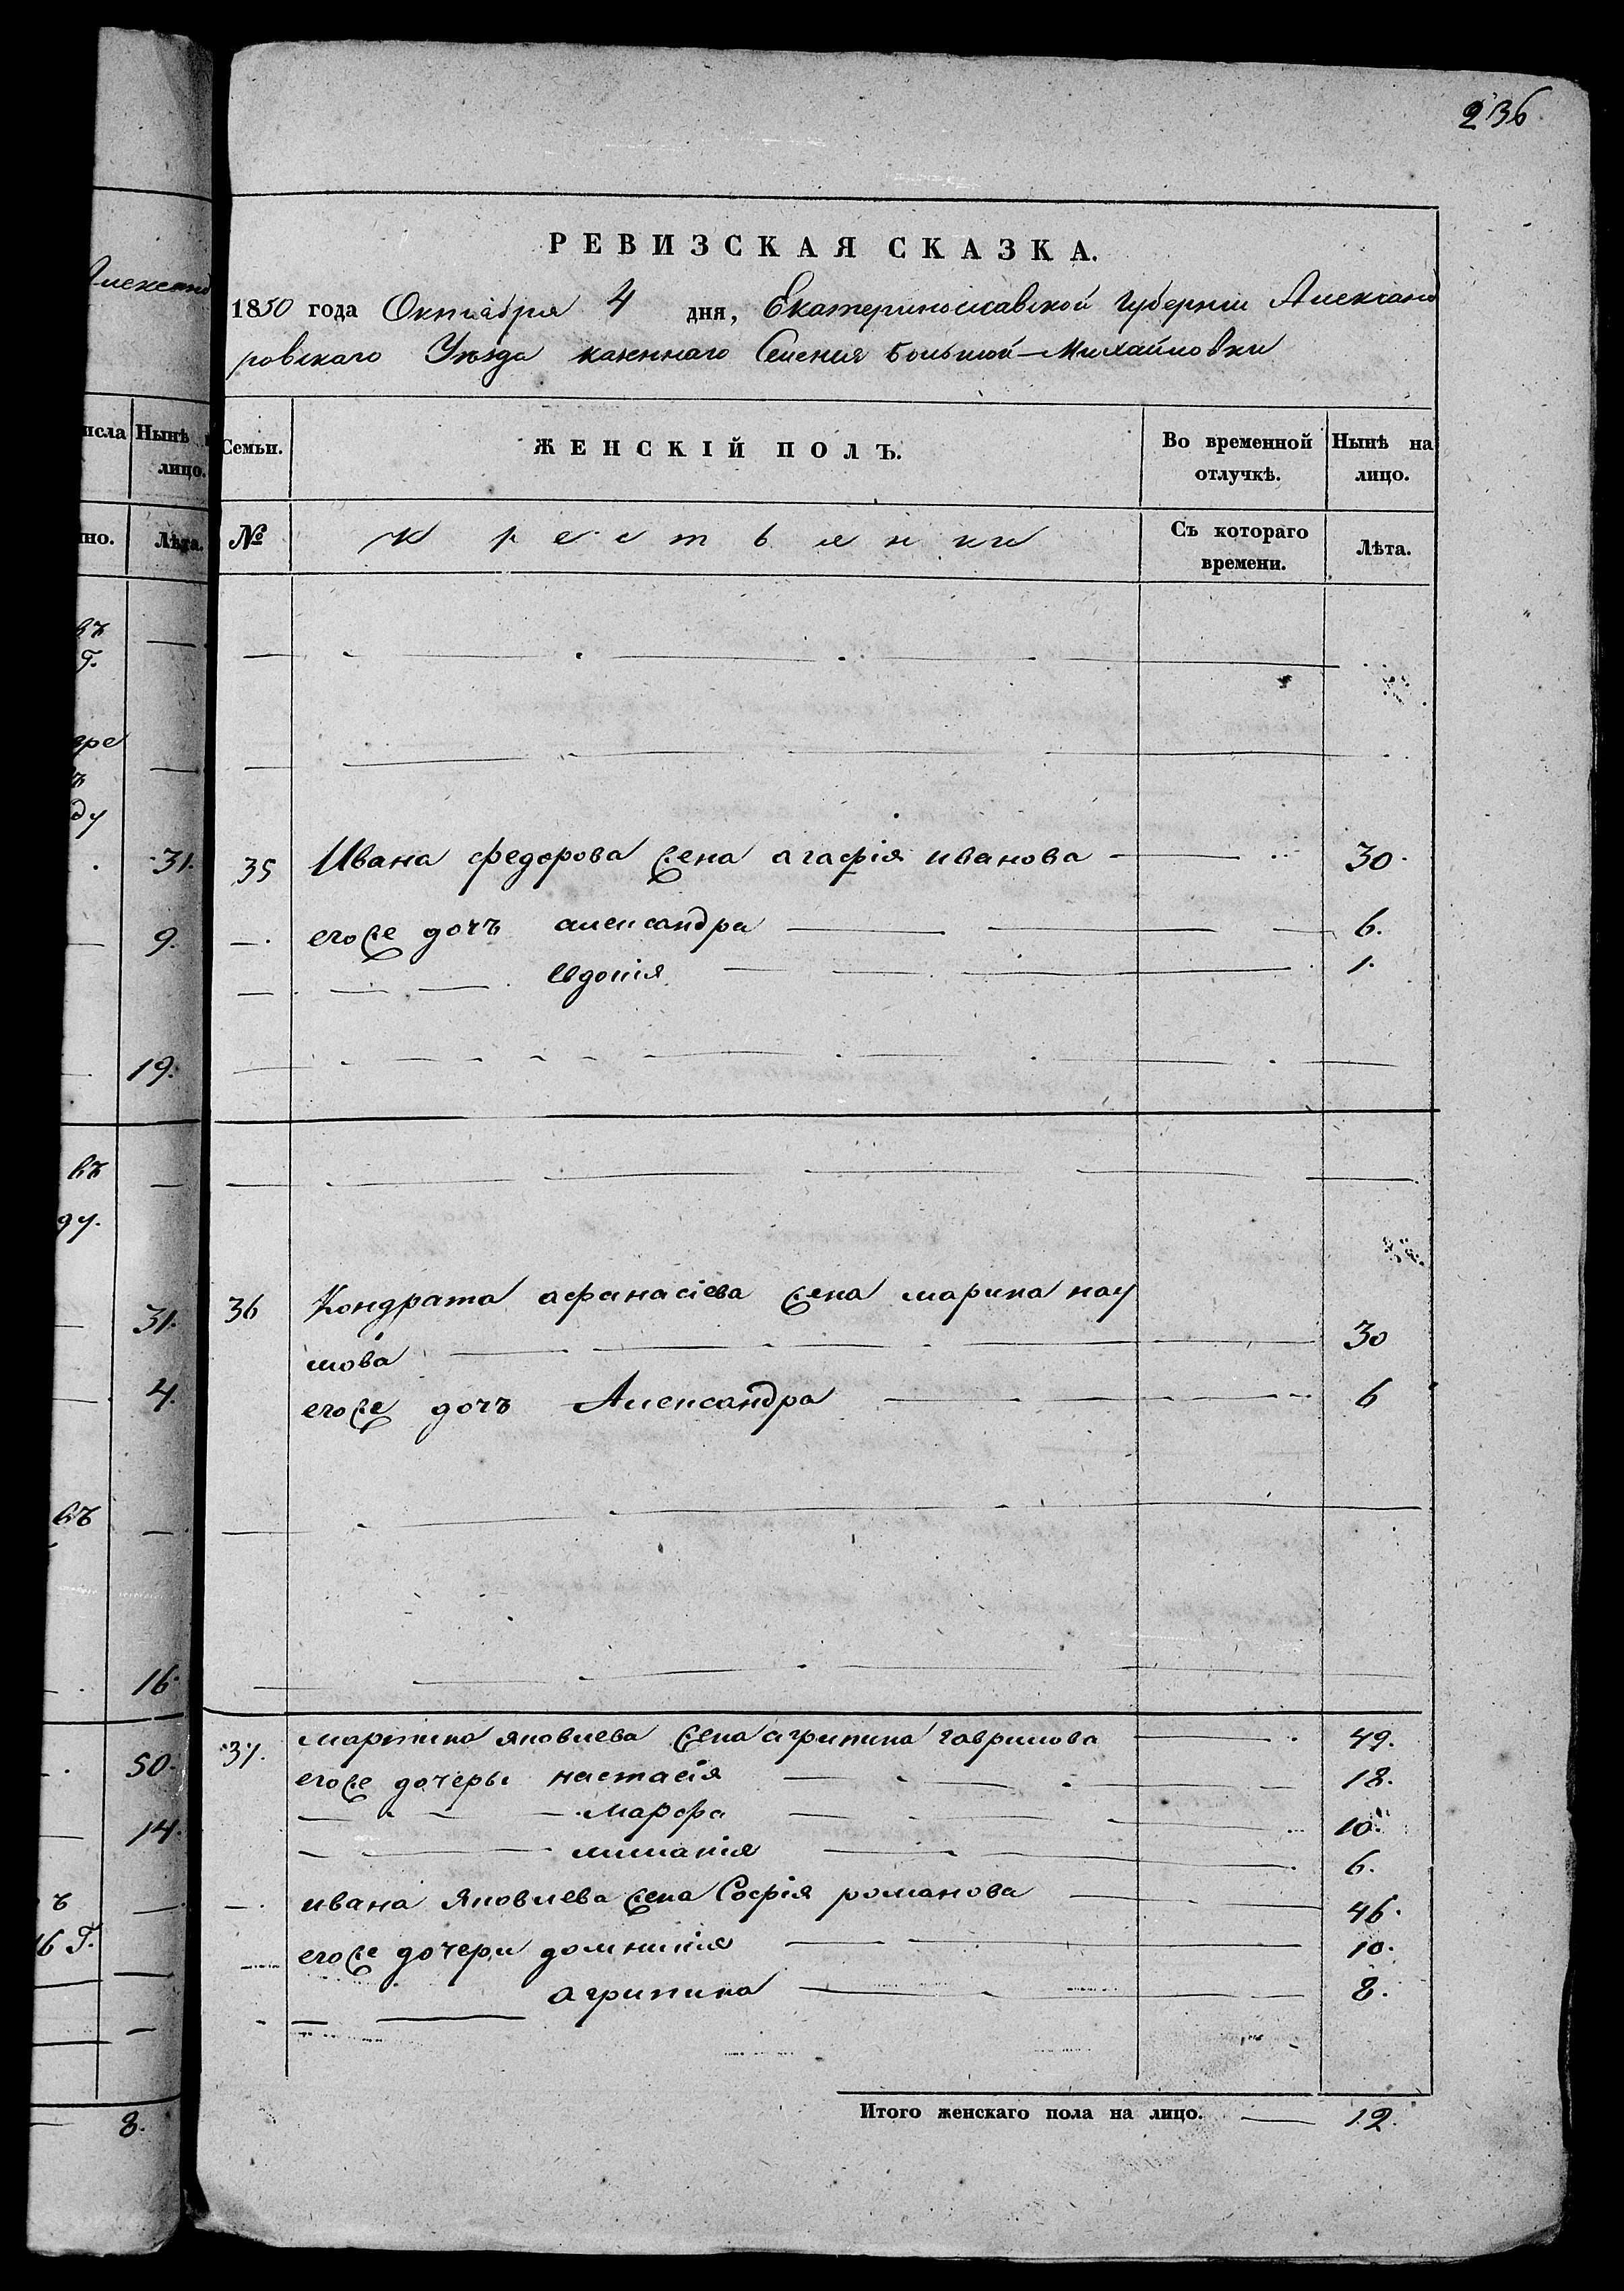 236
РЕВИЗСКАЯ СКАЗКА.
1850 года Октября 4 дня, Екатеринославской Губернии Александ
ровскаго Уѣзда казеннаго Селения Большой-Михайловки
Семьи.
ЖЕНСКІЙ ПОЛЪ.
Во временной отлучкѣ.
Нынѣ на лицо.
№
Крестьянки
Съ котораго времени.
Лѣта.
35 Ивана федорова жена агафія иванова 30.
егоже дочь александра 6.
Евдокія 1.
36 Кондрата афанасіева жена марина нау
мова 30
егоже дочь Александра 6
37. мартина яковлева жена агрипина гаврилова 49.
егоже дочеры настасія 18.
Марфа 10.
миланія 6.
ивана Яковлева жена Софія романова 46.
егоже дочери домникия 10.
агрипина 8.
Итого женскаго пола на лицо. 12.
Александ
исла
Нынѣ
лицо.
но.
Лѣта.
въ
Г.
ду
31.
9.
19.
въ
ду.
31.
4.
въ
16.
50.
14.
ъ
46 Г.
8.